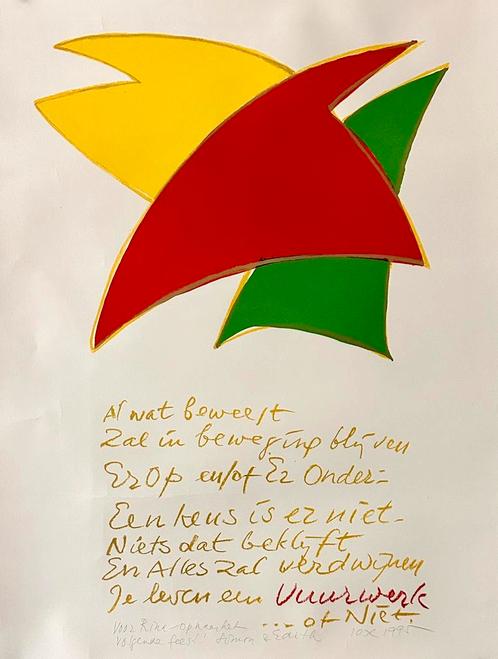 Al wat beweegt
Zal in beweging blijven
Er Op en/of Er Onder:
Een keus is er niet.
Niets dat beklijft
En Alles zal verdwijnen
Je leven een Vuurwerk
... of Niet.
Voor Rina op naar het
volgende feest! Simon & Edith 10X 1995